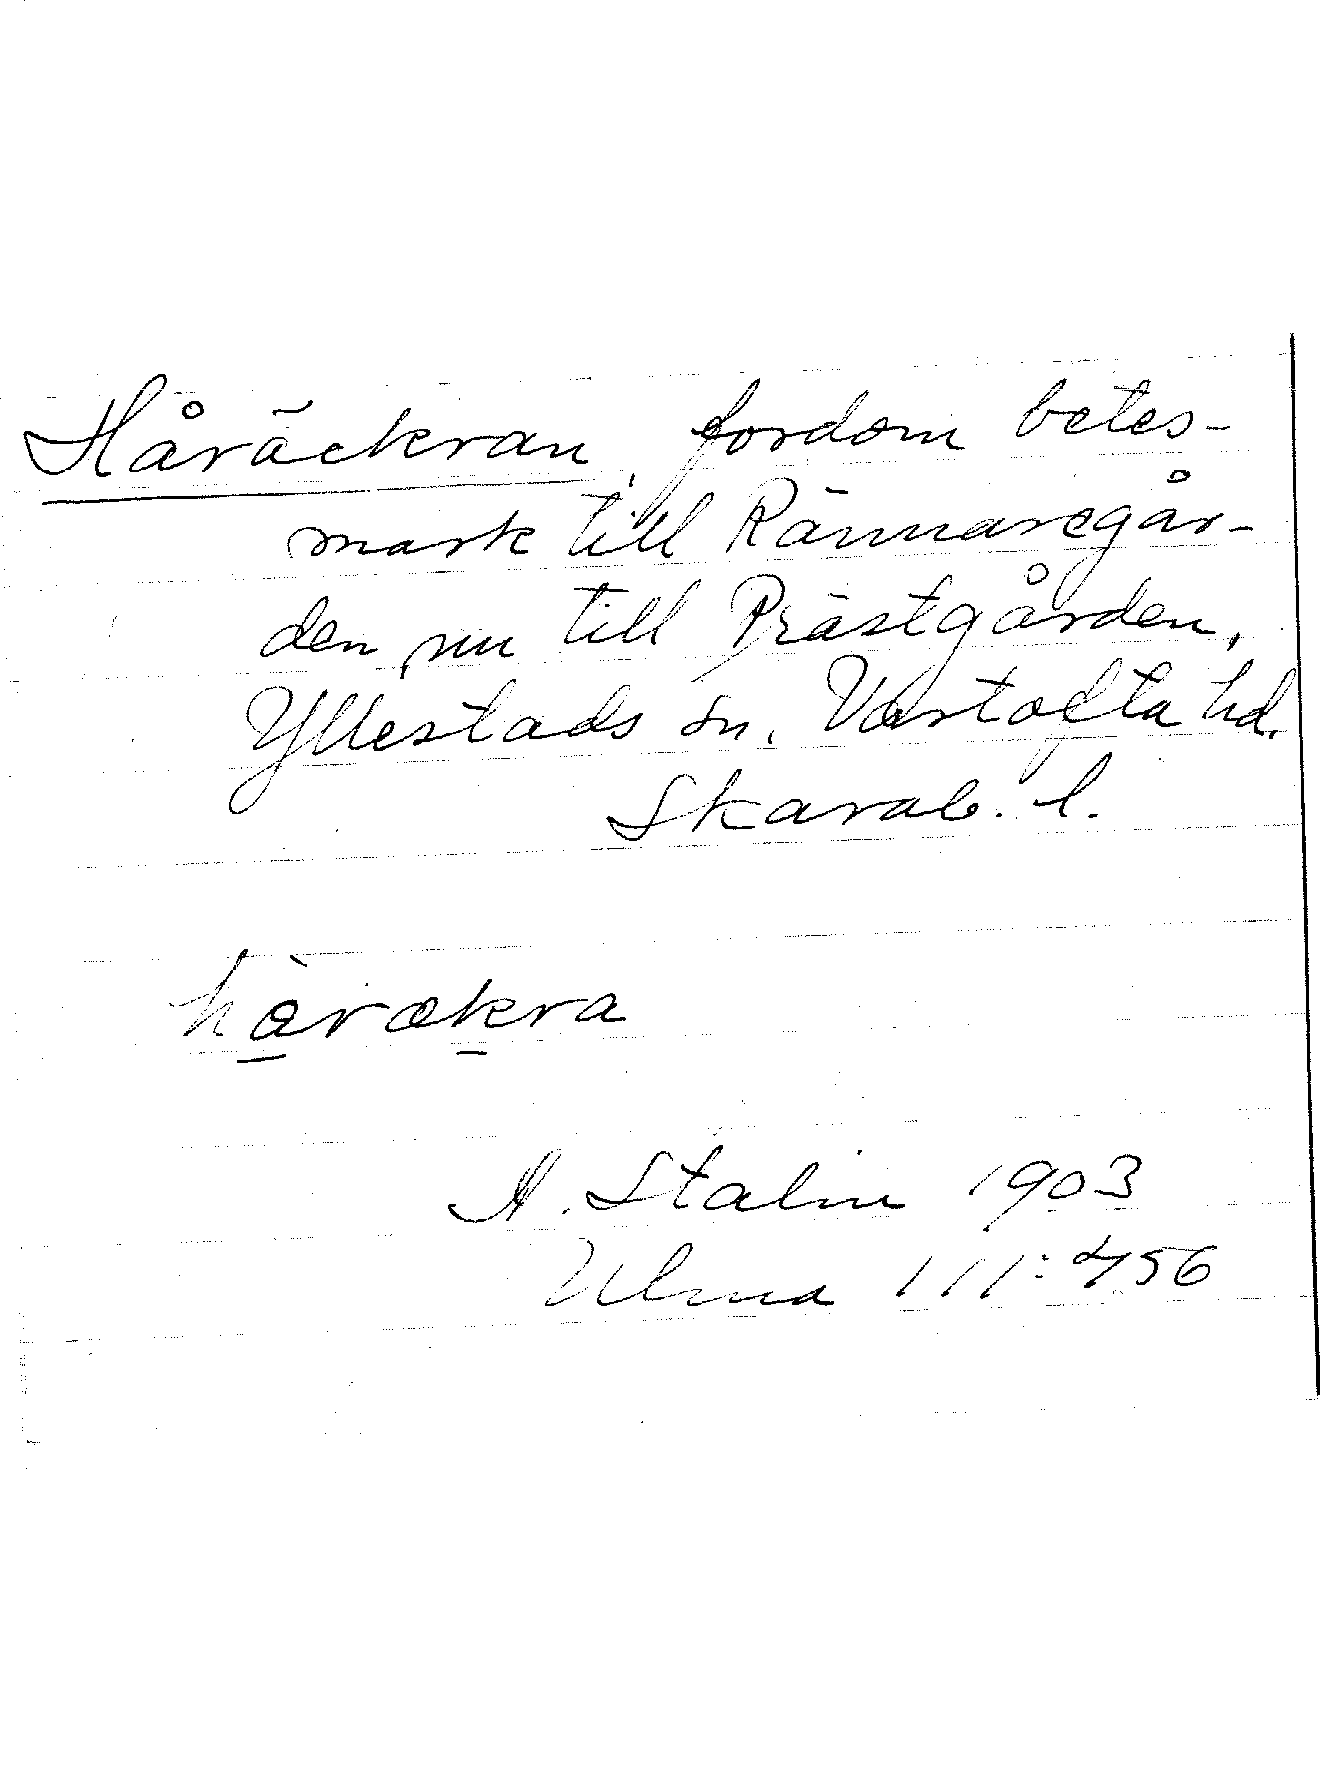 Håräckran, fordom betes-
mark till Rännaregår-
den, nu till Prästgården,
Yllestads sn. Vartofta hd.
Skarab. l.
hàrækra
A. Stalin 1903
Ulma 111:456